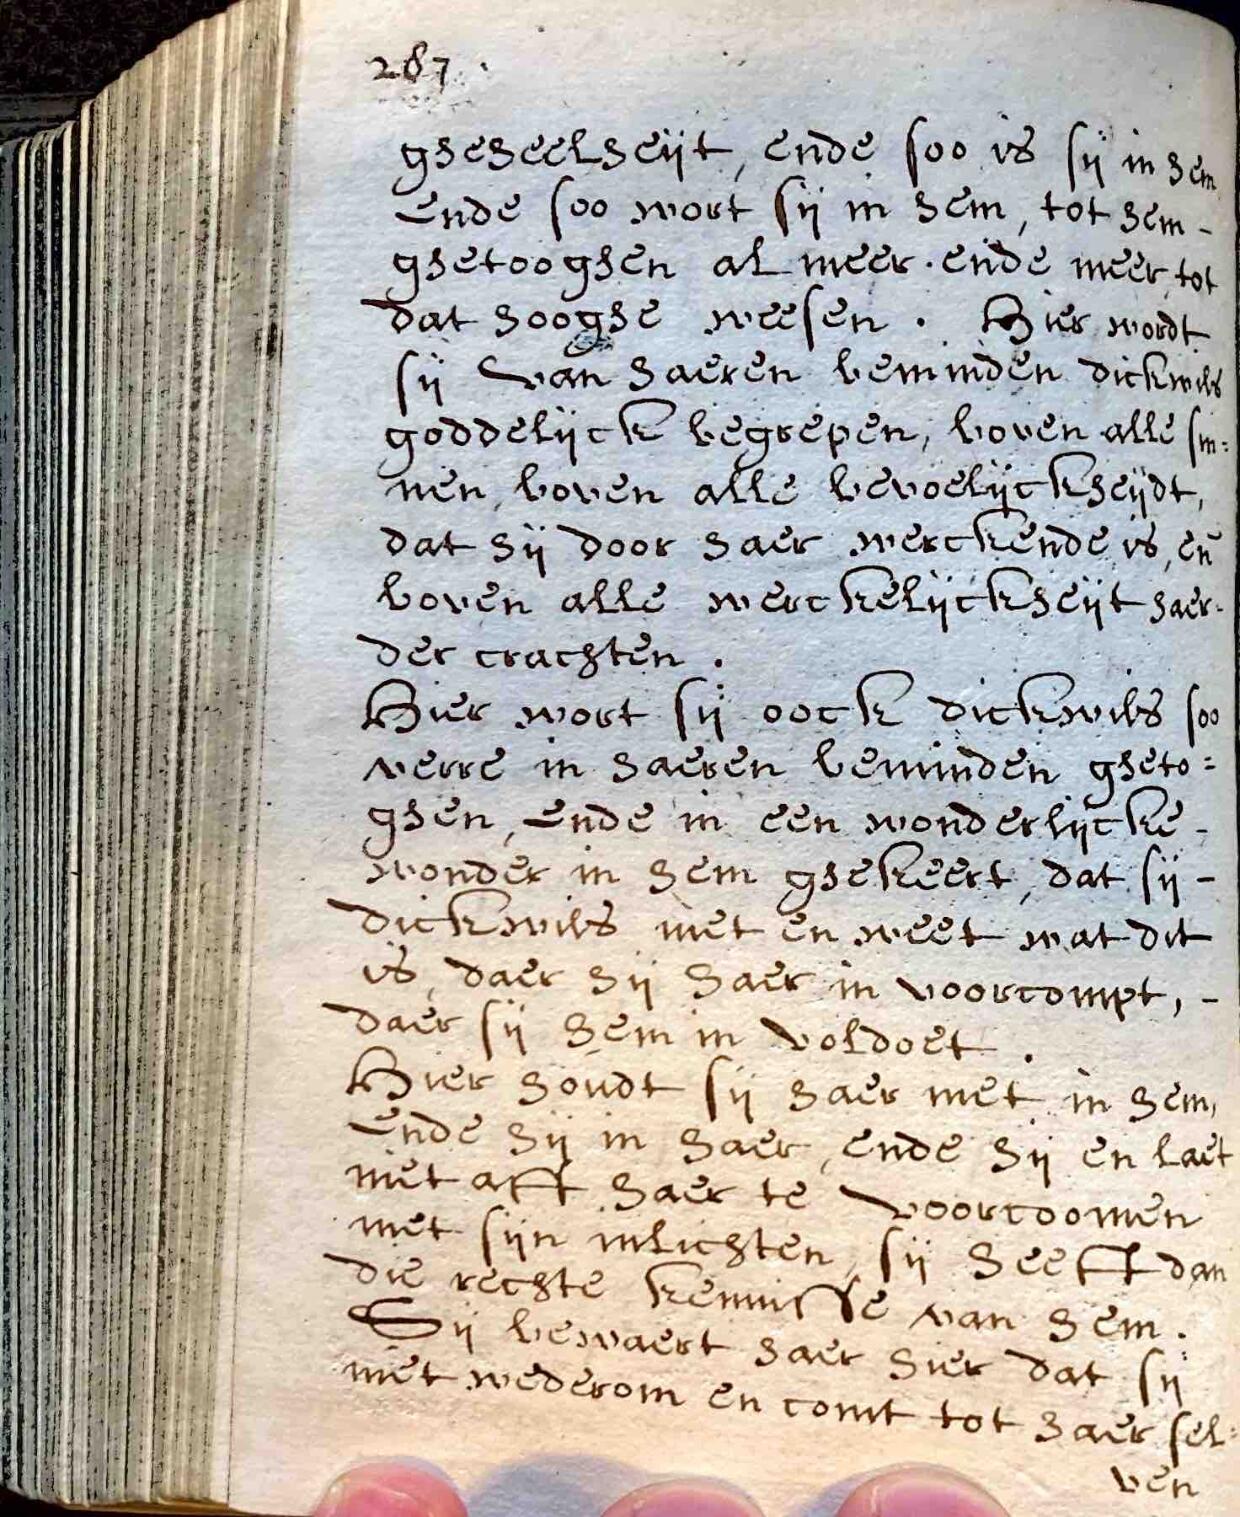 287.
gheheelheijt, ende soo is sij in hem
Ende soo wort sij in hem, tot hem -
ghetooghen al meer ende meer tot
dat hooghe weesen. Hier wordt
sij van haeren beminden dickwils
goddelijck begrepen, boven alle sin=
nen, boven alle bevoelijckheijdt,
dat hij door haer werckende is, eñ
boven alle werckelijckheijt haer-
der crachten.
Hier wort sij oock dickwils soo
verre in haeren beminden gheto=
ghen, Ende in een wonderlijcke -
wonder in hem ghekeert, dat sij -
dickwils niet en weet wat dit
is, daer hij haer in voorcompt, -
daer sij hem in voldoet.
Hier houdt sij haer met in hem,
Ende hij in haer, ende hij en laet
niet aff haer te voorcoomen
met sijn inlichten, sij heeft dan
die rechte kennisse van hem.
Sij bewaert haer hier dat sij
niet wederom en comt tot haer sel=
ven